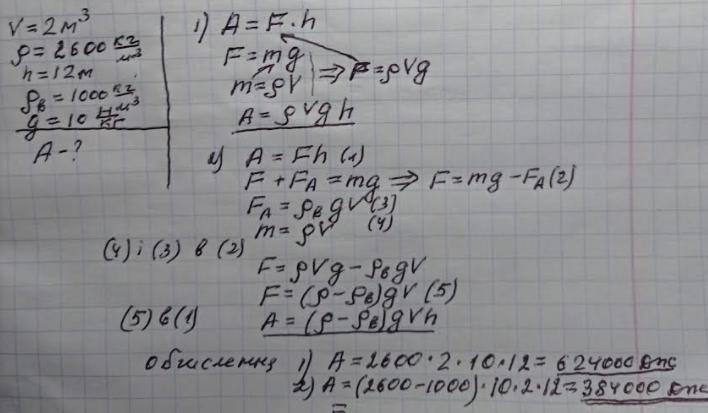 V = 2 м³
ρ = 2600 кг/м³
h = 12 м
ρв = 1000 кг/м³
g = 10 Н/кг
A - ?
1) A = F · h
F = mg
m = ρV
⇒ F = ρVg
A = ρVgh
2) A = Fh (1)
F + FA = mg ⇒ F = mg - FA (2)
FA = ρв gV (3)
m = ρV (4)
(4) і (3) в (2)
F = ρVg - ρв gV
F = (ρ - ρв)gV (5)
(5) в (1) A = (ρ - ρв)gVh
Обчислення 1) A = 2600 · 2 · 10 · 12 = 624000 Дж
2) A = (2600 - 1000) · 10 · 2 · 12 = 384000 Дж
=